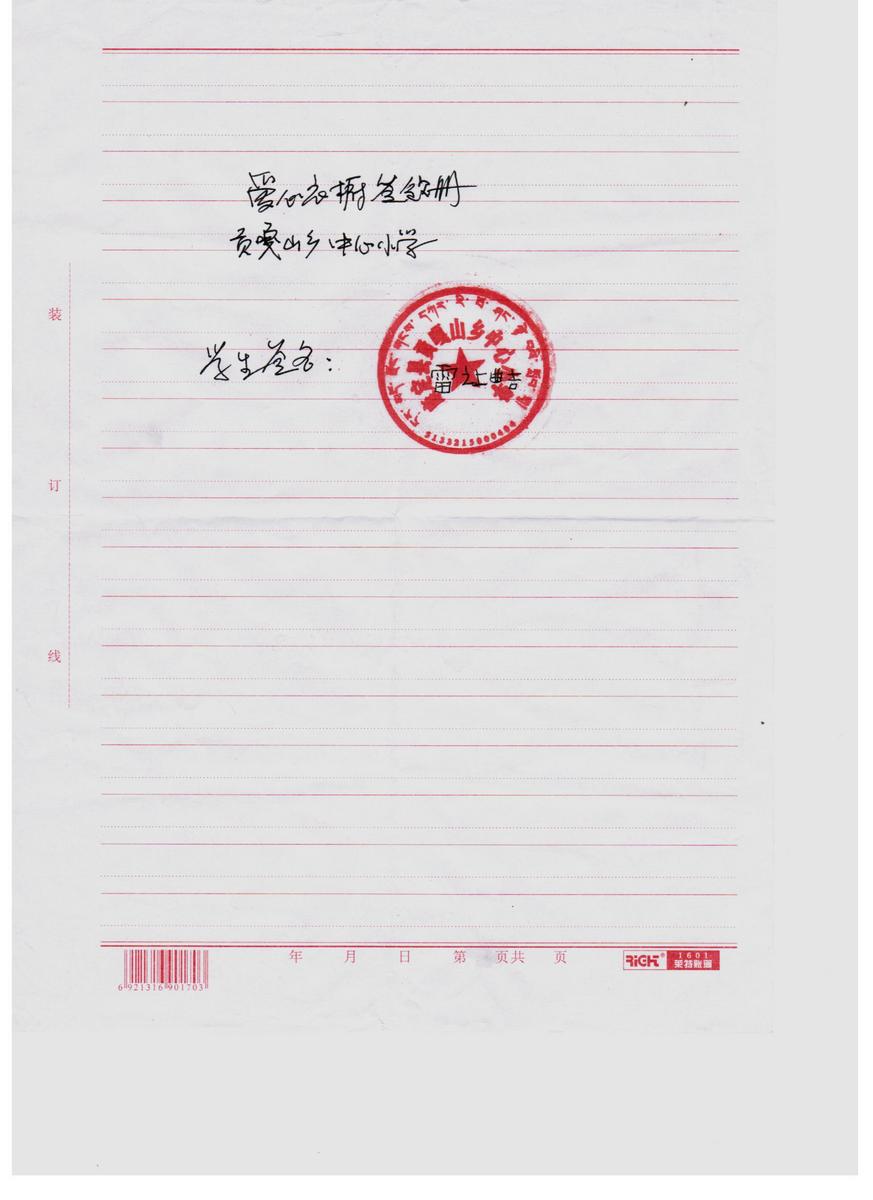 爱心衣橱签领册
贡嘎山乡中心小学
学生签名：
康定县贡嘎山乡中心小学
5133215000404
装
订
线
年 月 日 第 页共 页
6 921316 901703
RiGH® 1601
莱特账簿